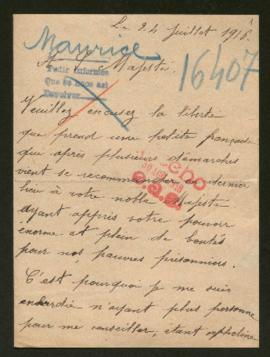 Le 24 Juillet 1916.
Maurice
Majesté,
16407
Pedir informes
Que se nos sea
Devolver
Veuillez excusez la liberté
que prend une petite française
que après plusieurs démarches
vient se recommander en dernier
lieu à votre noble Majesté
ayant appris votre pouvoir
énorme et plein de bontés
pour nos pauvres prisonniers.
C'est pourquoi je me suis
enhardie n'ayant plus personne
pour me conseiller, étant orpheline